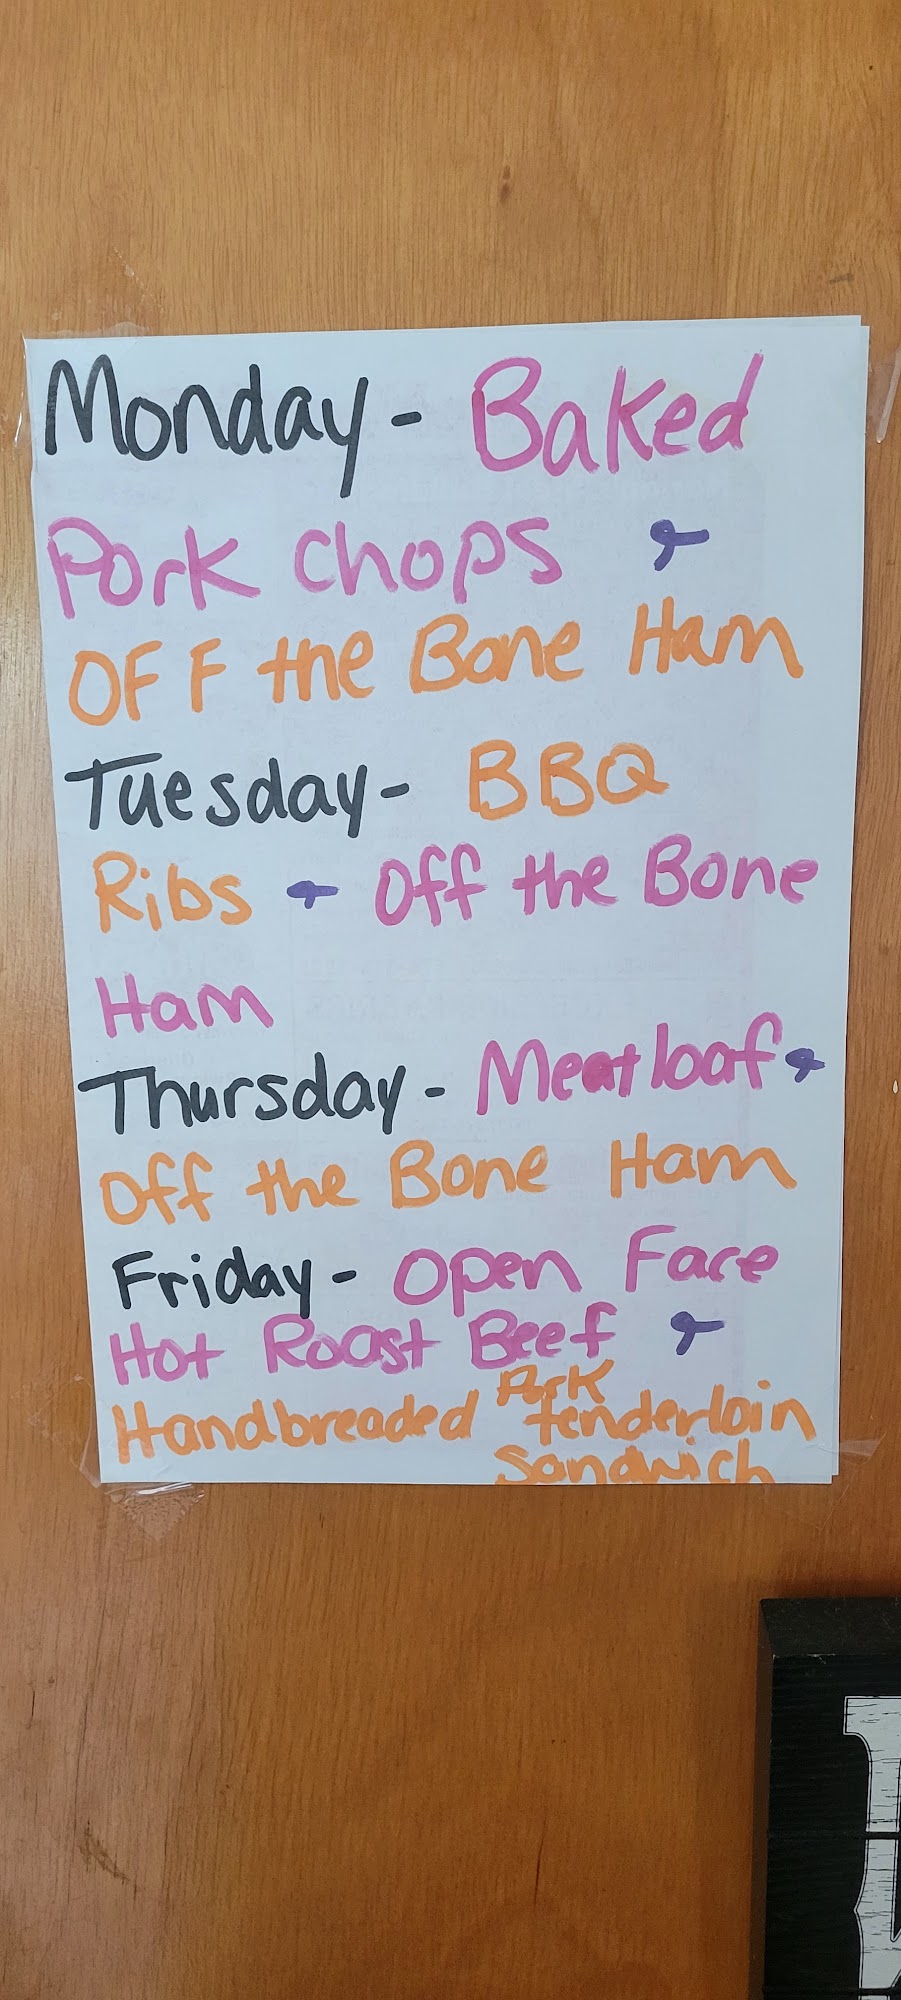 Monday - Baked
Pork chops &
OFF the Bone Ham
Tuesday - BBQ
Ribs & Off the Bone
Ham
Thursday - Meatloaf &
Off the Bone Ham
Friday - Open Face
Hot Roast Beef &
Handbreaded Pork tenderloin
Sandwich